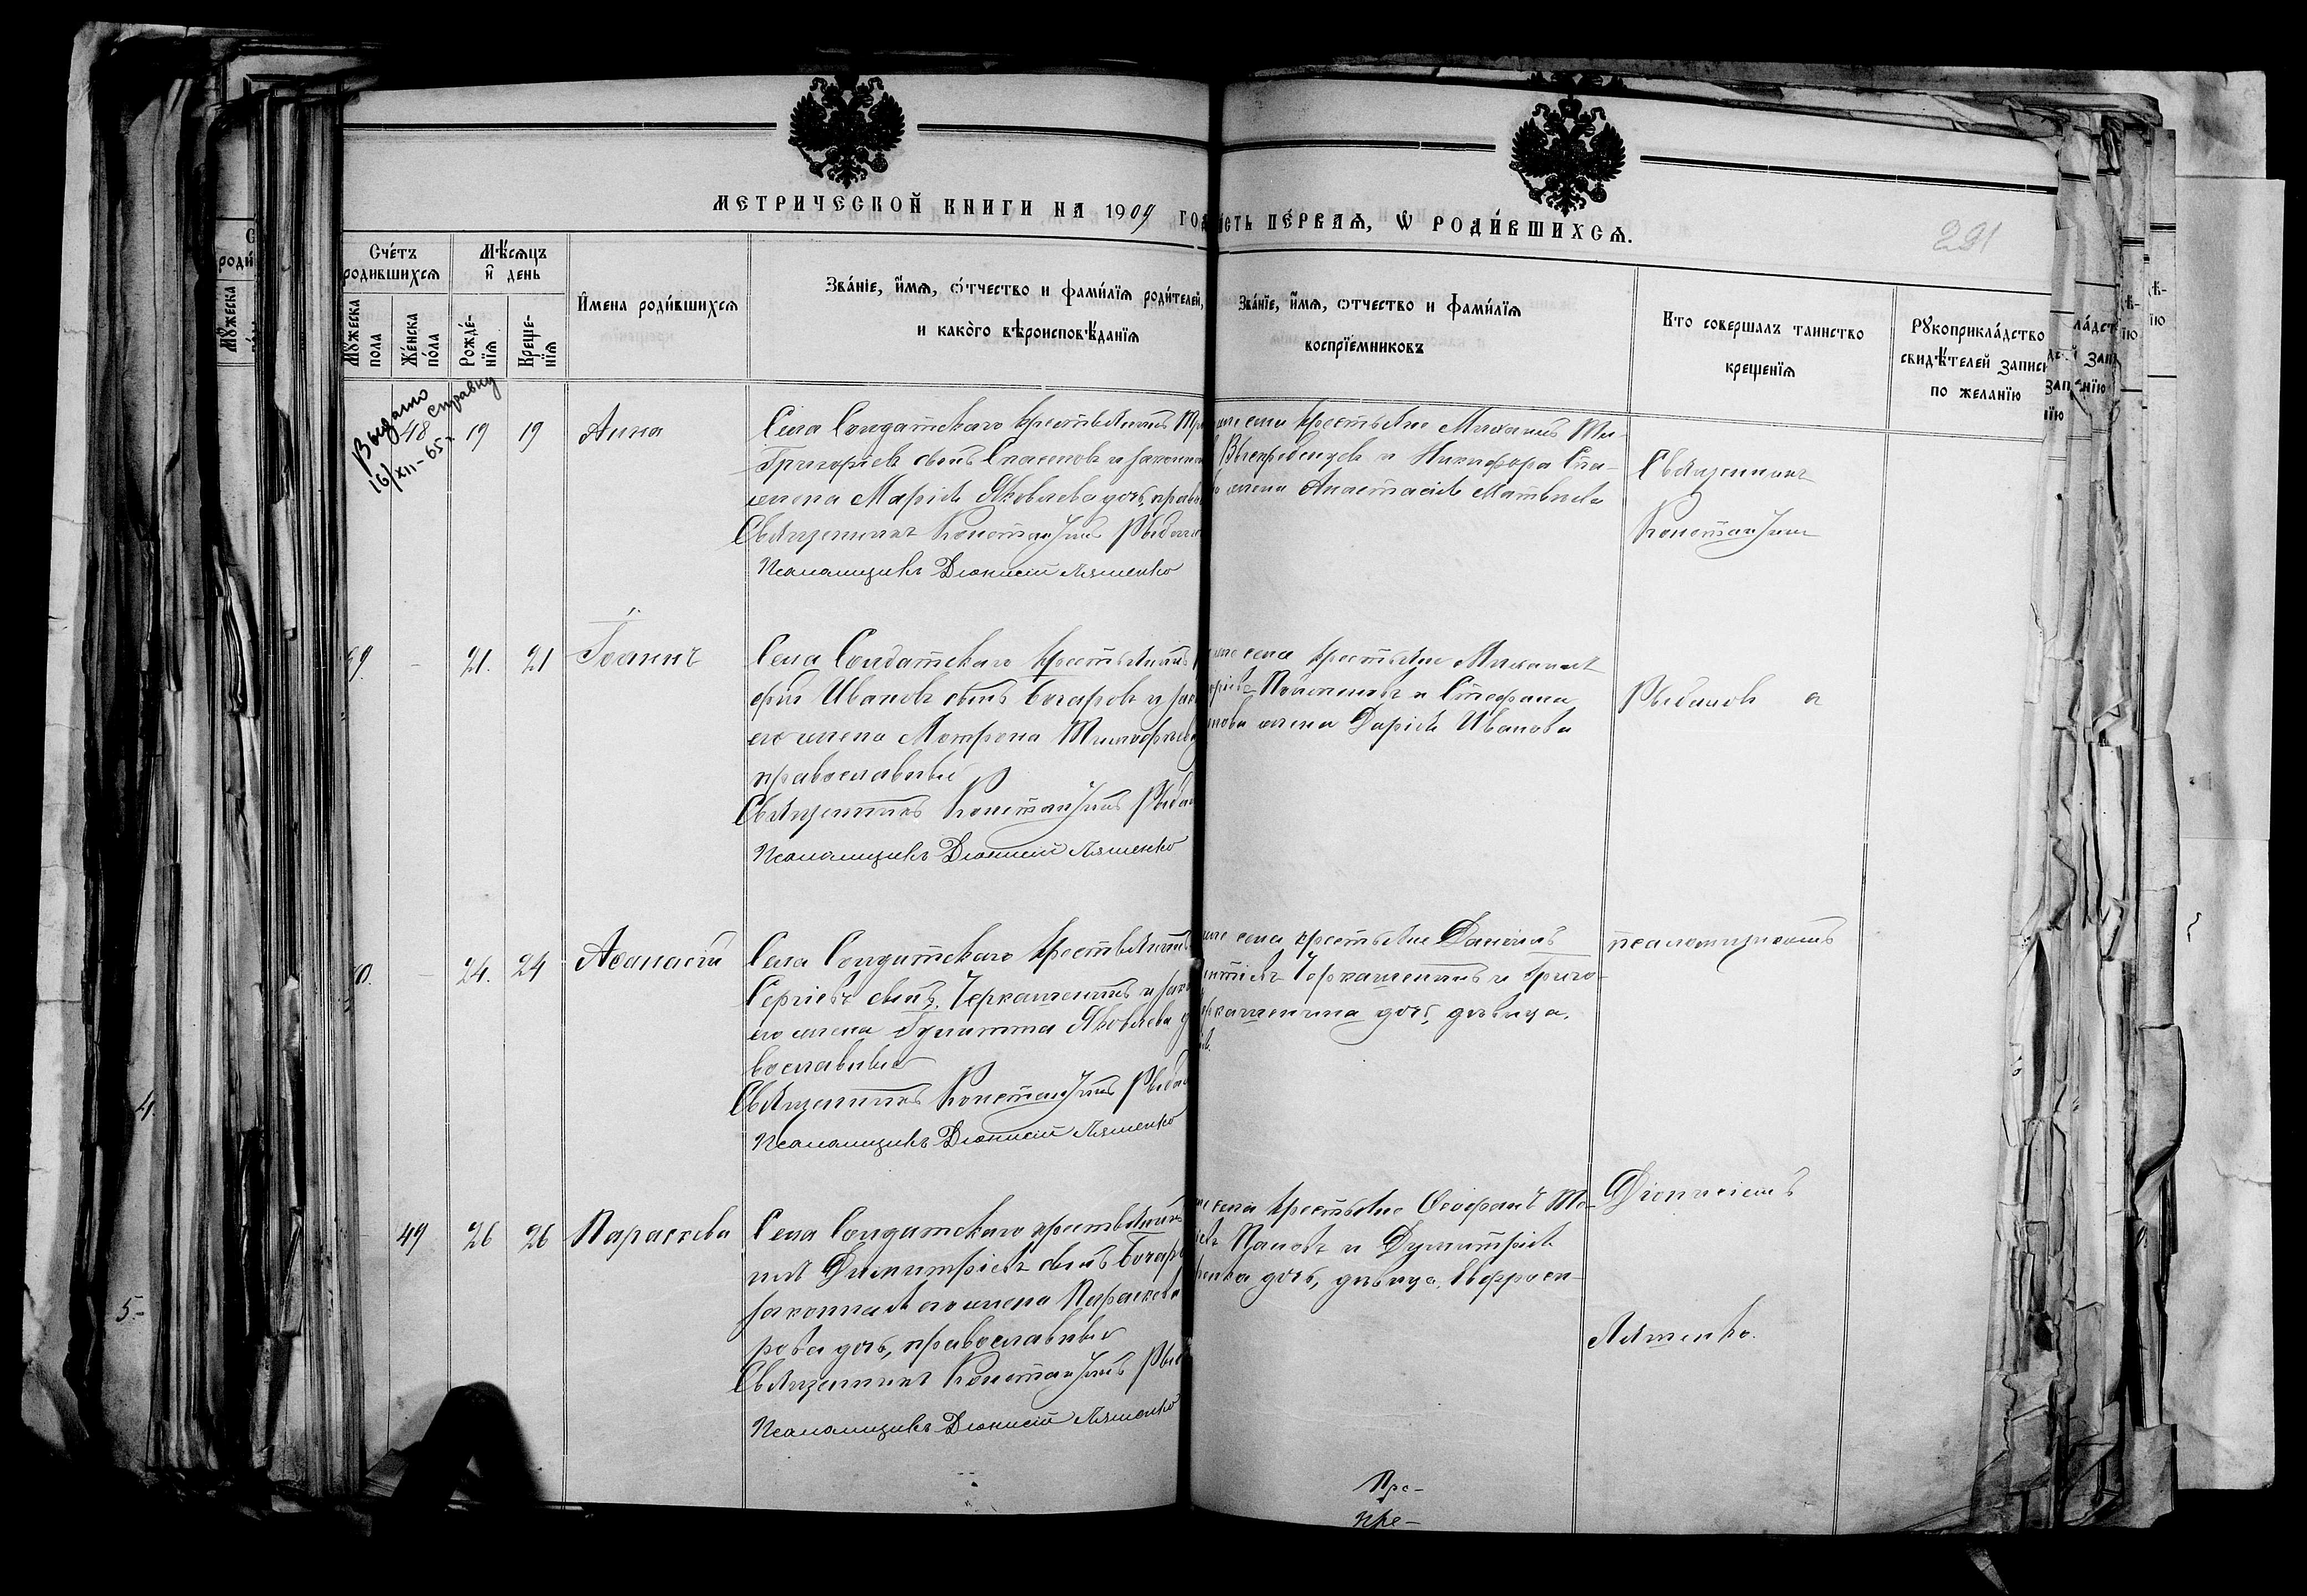 МЕТРИЧЕСКОЙ КНИГИ НА 1909 ГО
СТЬ ПЕ́РВАѦ, Ѡ РОДИ́ВШИХСѦ.
291
Сче́тъ родившихсѧ
Мѣ́сѧцъ и̂ день
Мꙋжеска пола
Же́нска по́ла
Рожде́-нїѧ
Креще-нїѧ
И̂мена роди́вшихсѧ
Зва́нїе, и҆́мѧ, ѻ҆́тчество и фами́лїѧ роди́телей,
и како́го вѣроисповѣ́данїѧ
Зва́нїе, и҆́мѧ, ѻтчество и фами́лїѧ
воспрїе́мниковъ
Кто совершалъ таинство
крещенїѧ
Рꙋкоприкла́дство
свидѣ́телей запис
по жела́нїю
Выдано справку
16/XII-65 г.
48
19
19
Анна
Села Солдатскаго крестьянинъ
Григорьевъ сынъ Спасеновъ и законн
жена Марія Яковлева дочь, прав
Священникъ Константинъ Рыбал
Псаломщикъ Діонисій Ляшенко
села крестьяне Михаилъ Ти-
и Никифора Спа-
жена Анастасія Матвѣева
Священникъ
Константинъ
39.
-
21.
21
Іоаннъ
Села Солдатскаго крестьянинъ
фій Ивановъ сынъ Бочаровъ и зак
его жена Мотрона Тимофѣева
православные
Священникъ Константинъ Рыбал
Псаломщикъ Діонисій Ляшенко
села крестьяне Михаилъ
и Стефана
нова жена Дарія Иванова
Рыбалов а
40.
-
24.
24
Аѳанасій
Села Солдатскаго крестьянинъ
Сергіевъ сынъ Черкашенинъ и зак
его жена Іулитта Яковлева
вославные
Священникъ Константинъ Рыбал
Псаломщикъ Діонисій Ляшенко
села крестьяне Даніилъ
Черкашенинъ и Григо-
ркашенина дочь, дѣвица.
псаломщикомъ
49
26
26
Параскева
Села Солдатскаго крестьянинъ
Димитріевъ сынъ Бочар
законная его жена Параскева
рова дочь, православные
Священникъ Константинъ Рыб
Псаломщикъ Діонисій Ляшенко
села крестьяне Ѳеофанъ
Пановъ и Димитрія
дочь, дѣвица, Евфроси-
Діонисіемъ
Ляшенко.
Пре-
пре-
4.
5-